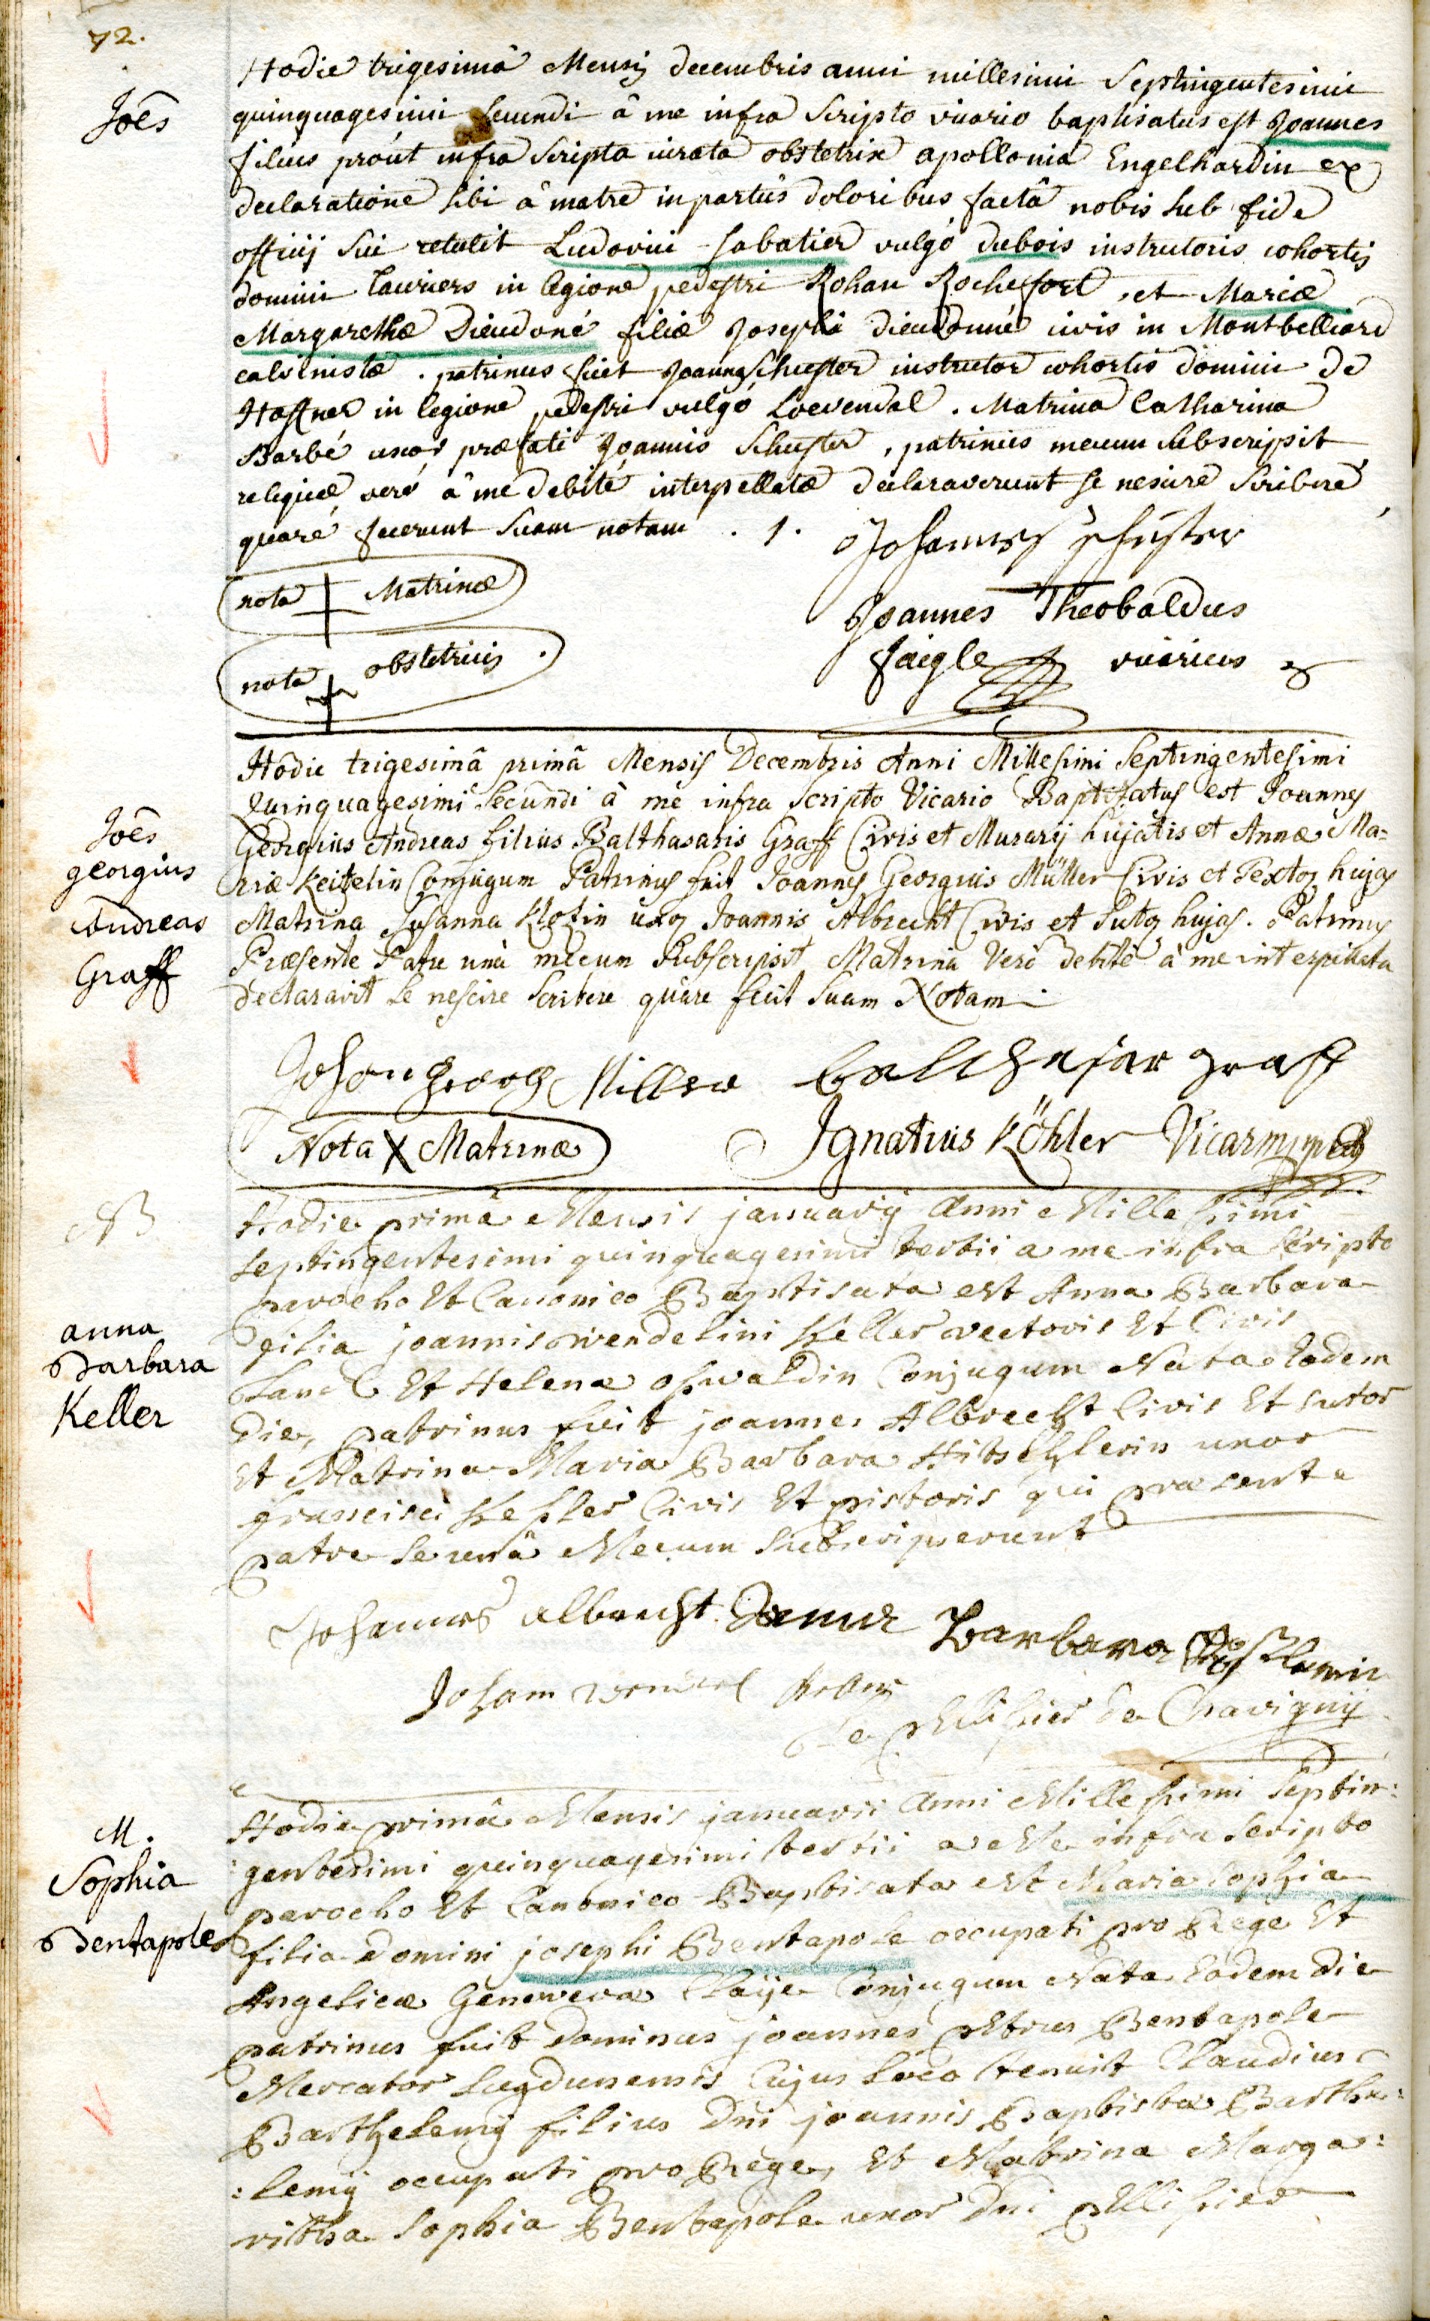 72.
Joes
Hodie trigesimâ Mensis decembris anni millesimi Septingentesimi
quinquagesimi secundi â me infra scripto vicario baptisatus est Joannes
filius proút infra scripta iurata obstetrix apollonia Engelhardin ex
declaratione sibi â matre in partûs doloribus factâ nobis sub fide
officij sui retulit Ludovici Sabatier vulgó dubois instrutoris cohortis
domini Lauriers in legione pedestri Rohan Rochefort, et Mariæ
Margarethæ Dieudoné filiæ Josephi dieudonné civis in Montbelliard
calvinistæ. patrinus fuit Joannes Schuster instrutor cohortis domini de
Haffner in legione pedestri vulgó Loevendal. Matrina Catharina
Barbé uxor præfati Joannis Schuster, patrinus mecum subscripsit
reliquæ veró â me debité interpellatæ declaraverunt se nescire scribere
quaré fecerunt suam notam . / .
Johannes Schuster
nota Matrinæ
Joannes Theobaldus
nota obstetricis .
Faigle vicarius
Hodie trigesimâ primâ Mensis Decembris Anni Millesimi Septingentesimi
Quinquagesimi Secundi à me infra scripto Vicario Baptisatus est Joannes
Joes
georgius
Andreas
Graff
Georgius Andreas filius Balthasaris Graff Civis et Murarij hujatis et Annæ Ma=
riæ Keitzelin Conjugum Patrinus fuit Joannes Georgius Müller Civis et Textor hujas
Matrina Susanna Klotzin uxor Joannis Albrecht Civis et Sutor hujas. Patrinus
Præsente Patre unà mecum Subscripsit Matrina Verò debitè à me interpellata
declaravit se nescire scribere quare fecit suam Notam.
Johan georg Miller balthasar graff
Nota X Matrinæ
Ignatius Köhler Vicarius mp
NB
Hodie primâ Mensis januarij Anni Millesimi
septingentesimi quinquagesimi tertii a me infra scripto
parocho Et Canonico Baptisata est Anna Barbara
anna
Barbara
Keller
filia joannis wendelini Keller Et Civis
Et Helenæ oswaldin Conjugum Nata Eodem
die, patrinus fuit joannes Albrecht Civis Et sutor
Et Matrina Maria Barbara uxor
francisci Keszler Civis Et pistoris qui præsente
patre se unâ Mecum subscripserunt
Johannes albrecht Barbara
Johann wendel Keller
Le Pellissier de Chavigny
Hodie primâ Mensis januarii Anni Millesimi septin:
M.
Sophia
Bentapole
gentesimi quinquagesimi tertii a Me infra scripto
parocho Et Canonico Baptisata est Maria Sophia
filia Domini josephi Bentapole occupati pro Rege Et
Angelicæ Genoveva Conjugum Nata Eodem die
patrinus fuit Dominus joannes petrus Bentapole
Mercator Lugdunensis Cujus loco tenuit Claudius
Barthelemij filius Dni joannis Baptistæ Barthe:
:lemij occupati pro Rege, Et Matrina Marga:
ritha Sophia Bentapole uxor Dni Pellissier